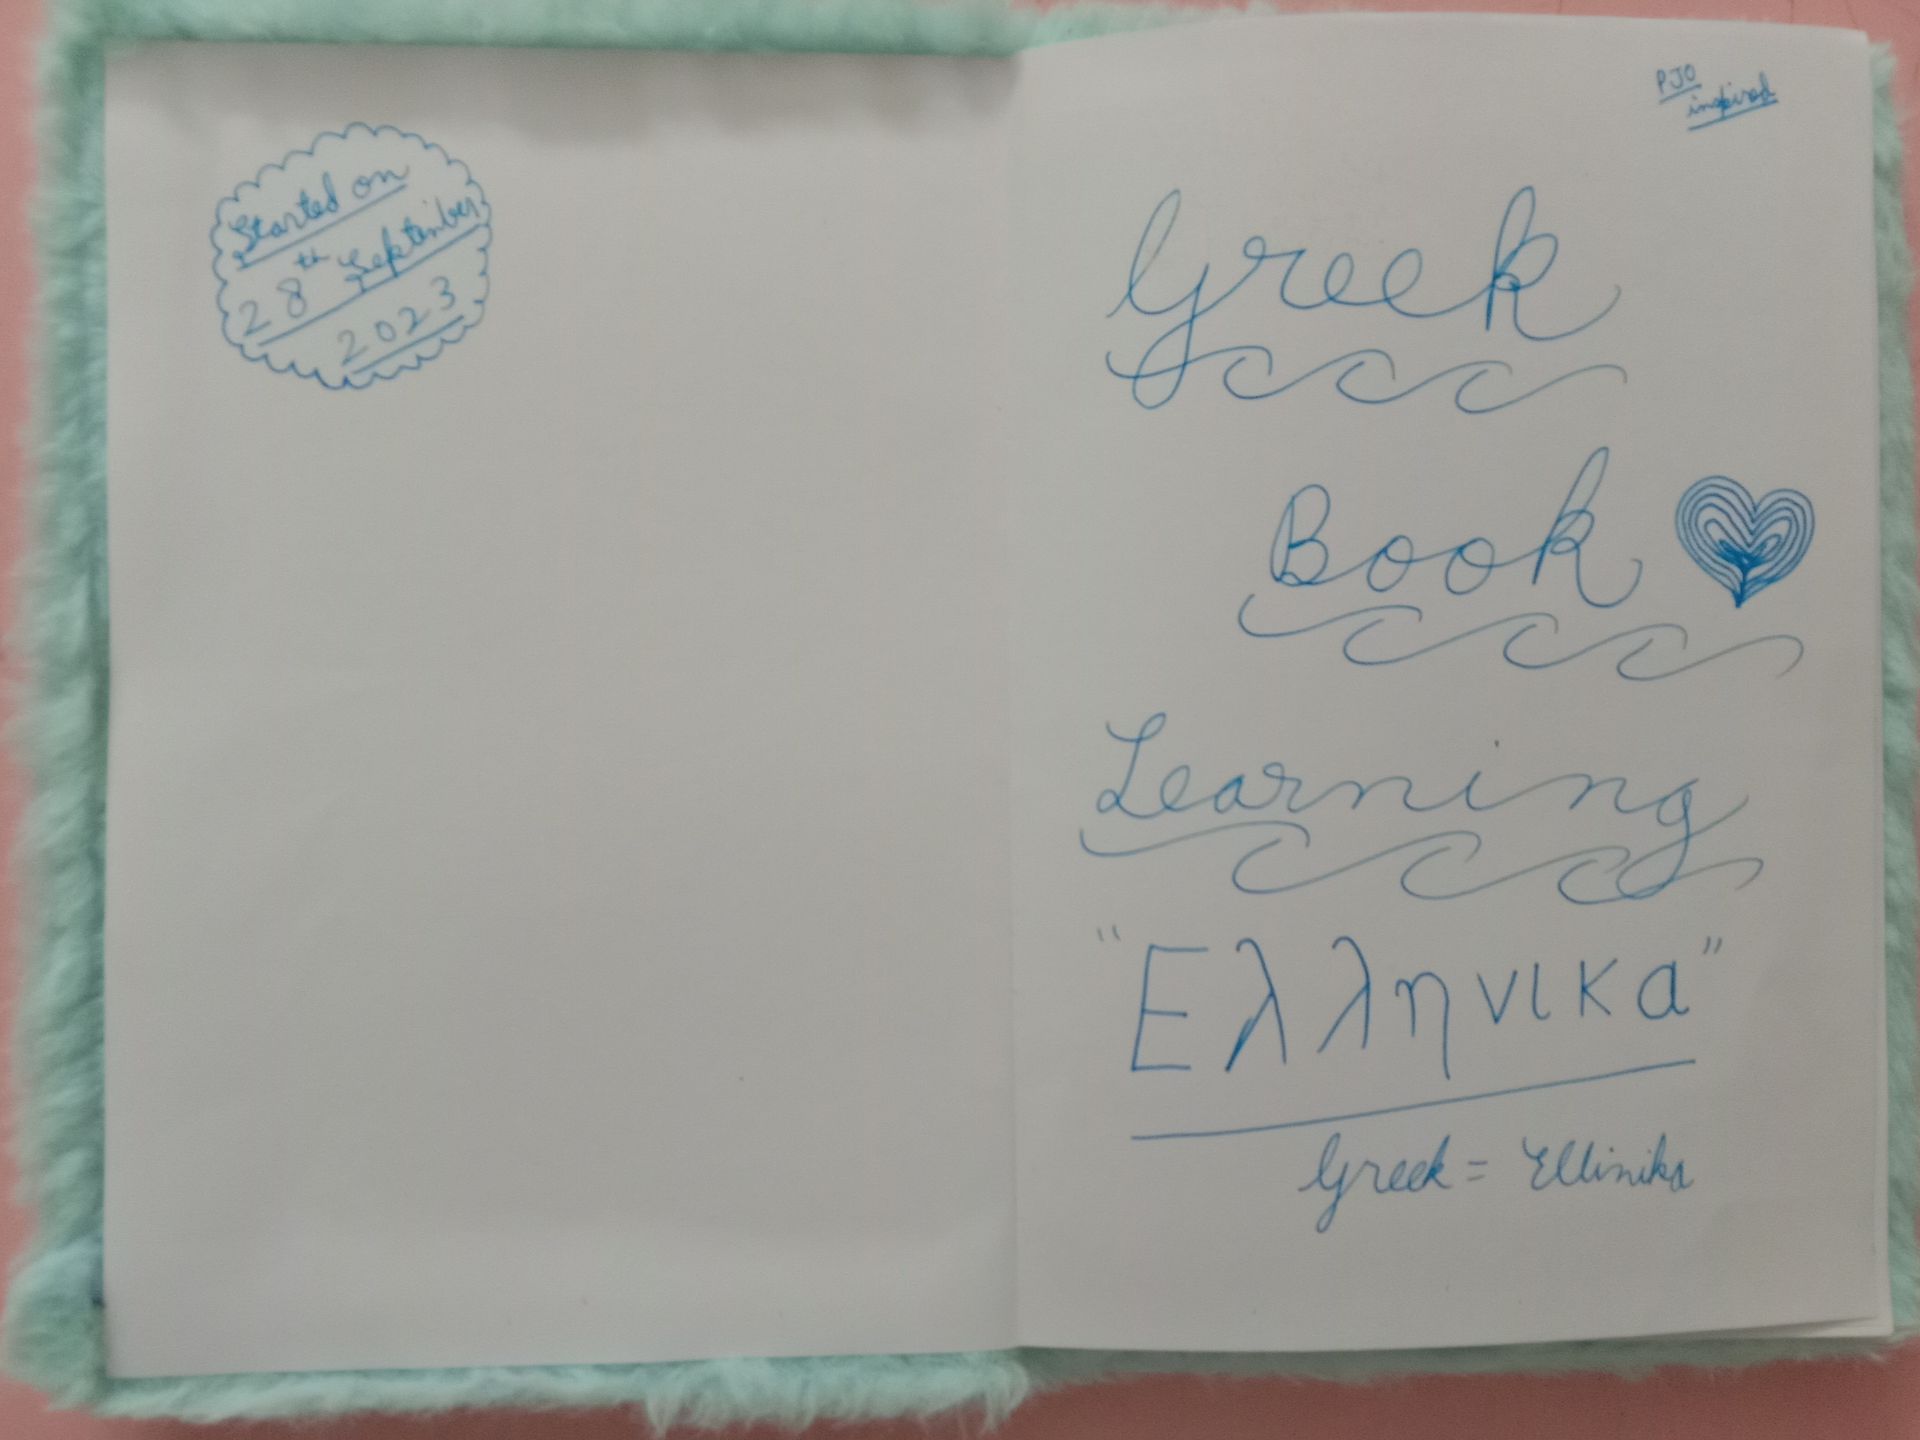 Started on
28th September
2023
PJO
inspired
Greek
Book
Learning
"Ελληνικα"
Greek = Ellinika